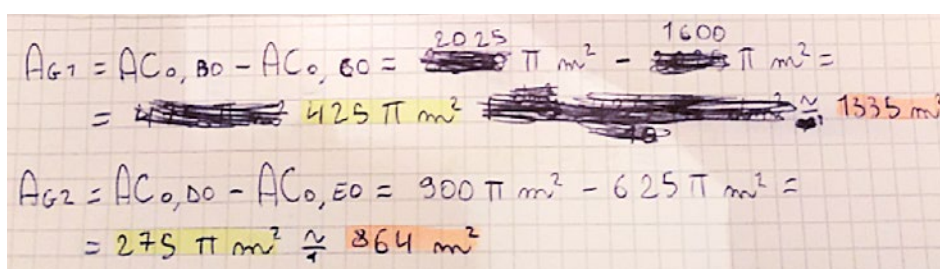 AG1 = ACo, BO - ACo, CO = 2025 π m² - 1600 π m² =
= 425 π m² ≃ 1335 m²
AG2 = ACo,DO - ACo,EO = 900 π m² - 625 π m² =
= 275 π m² ≃ 864 m²